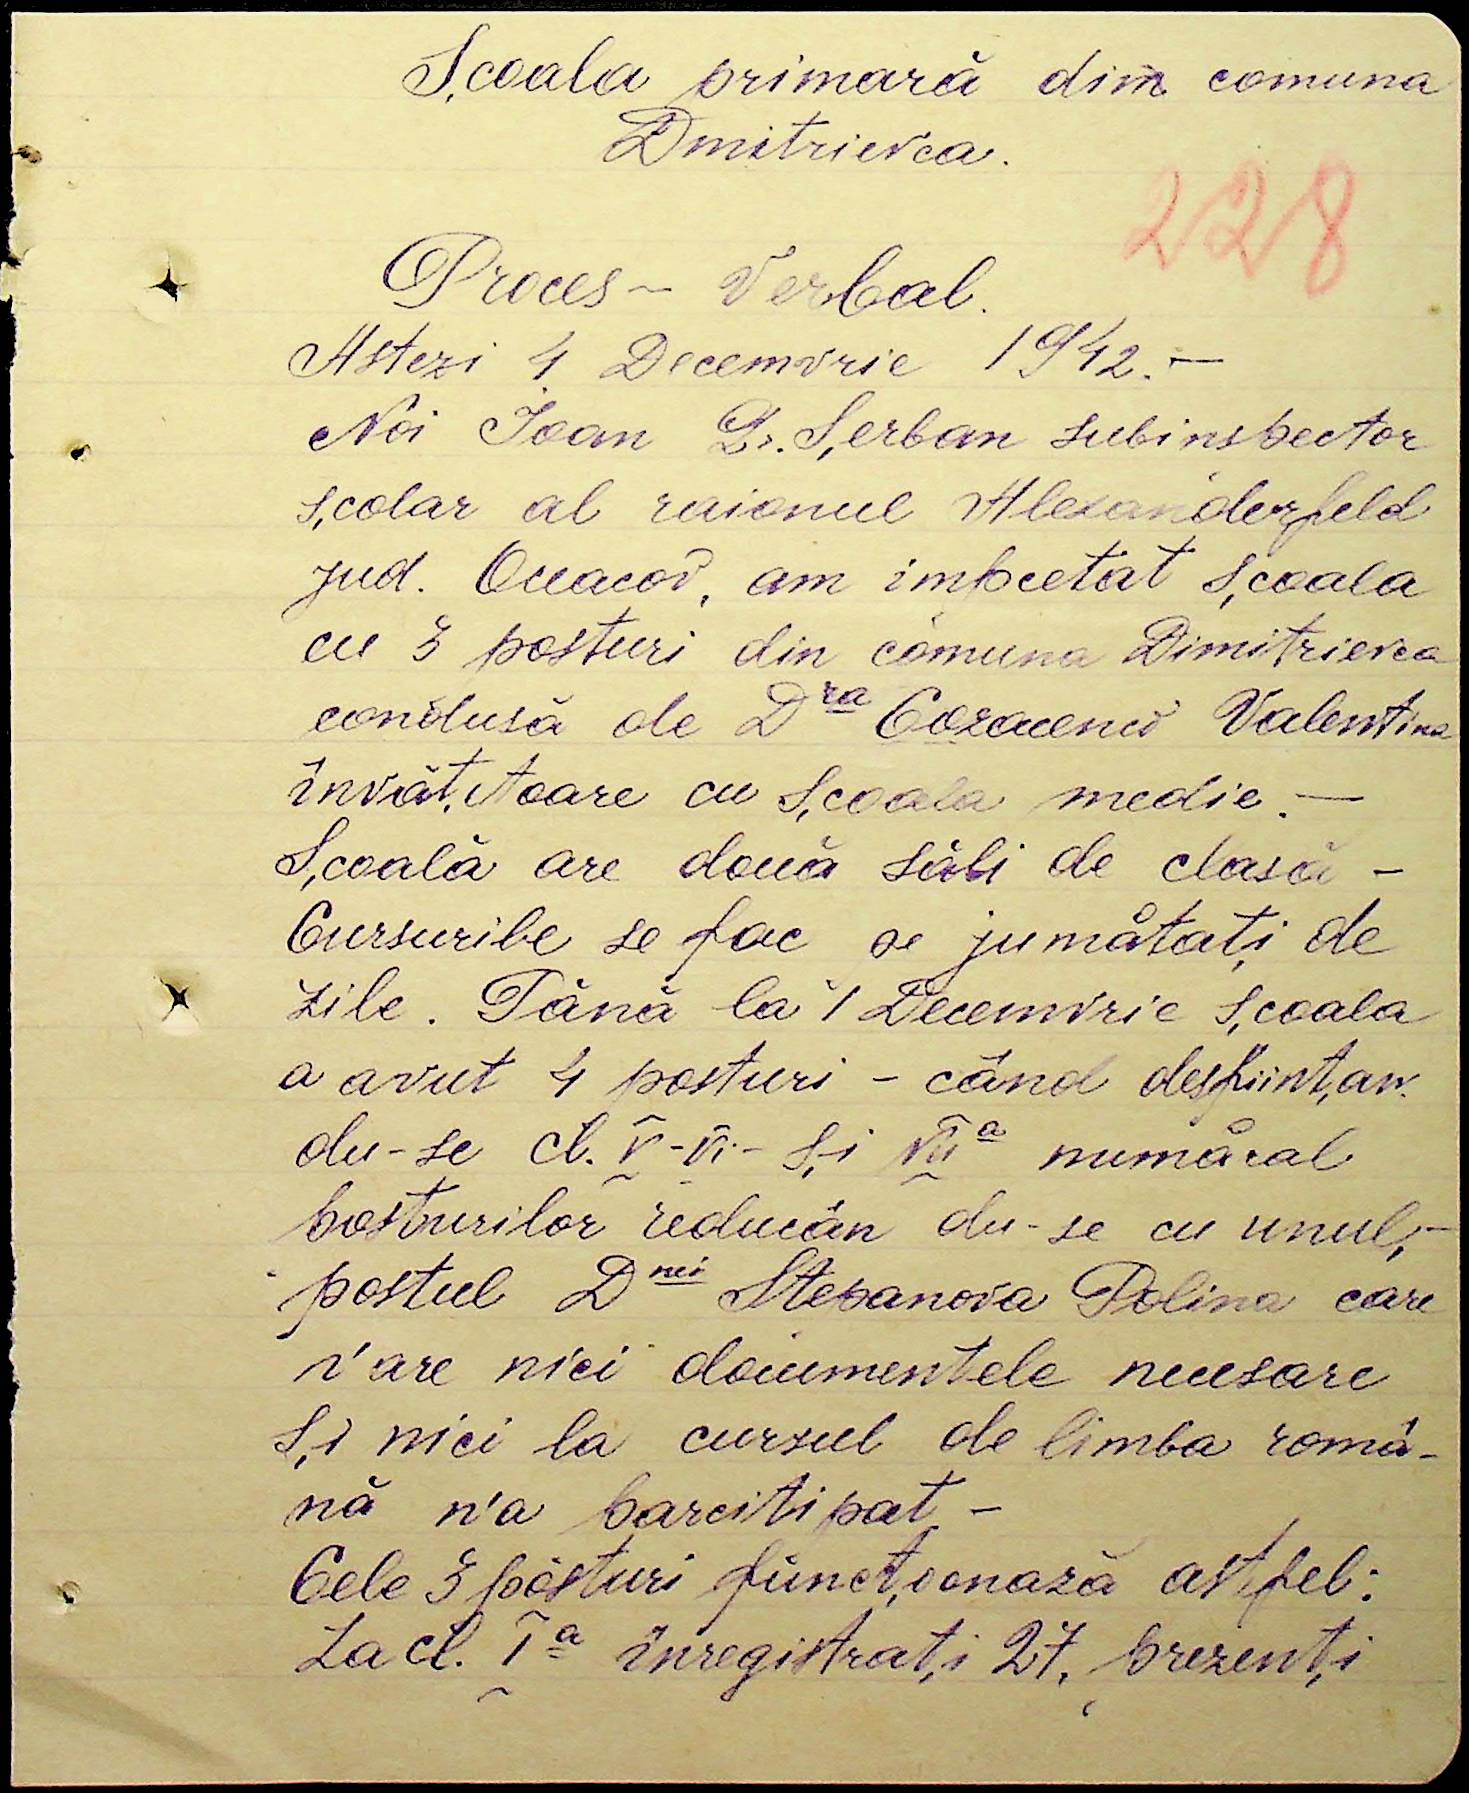 Școala primară din comuna
Dmitrievca.
228
Proces - Verbal.
Astezi 4 Decemvrie 1942. -
Noi Ioan Gr. Șerban subinspector
școlar al raionul Alexanderfeld
jud. Oceacov, am inspectat școala
cu 3 posturi din comuna Dimitrievca
condusă de Dra Cozacenco Valentina
învățătoare cu școala medie. -
Școală are două săli de clasă -
Cursurile se fac pe jumătăți de
zile. Până la 1 Decemvrie școala
a avut 4 posturi - când desființân-
du-se cl. V-VI- și VIIa numărul
posturilor reducân du-se cu unul, -
postul Dnei Stepanova Polina care
n'are nici documentele necesare
și nici la cursul de limba româ-
nă n'a parcitipat -
Cele 3 posturi funcționază astfel:
La cl. Ia înregistrați 27, prezenți